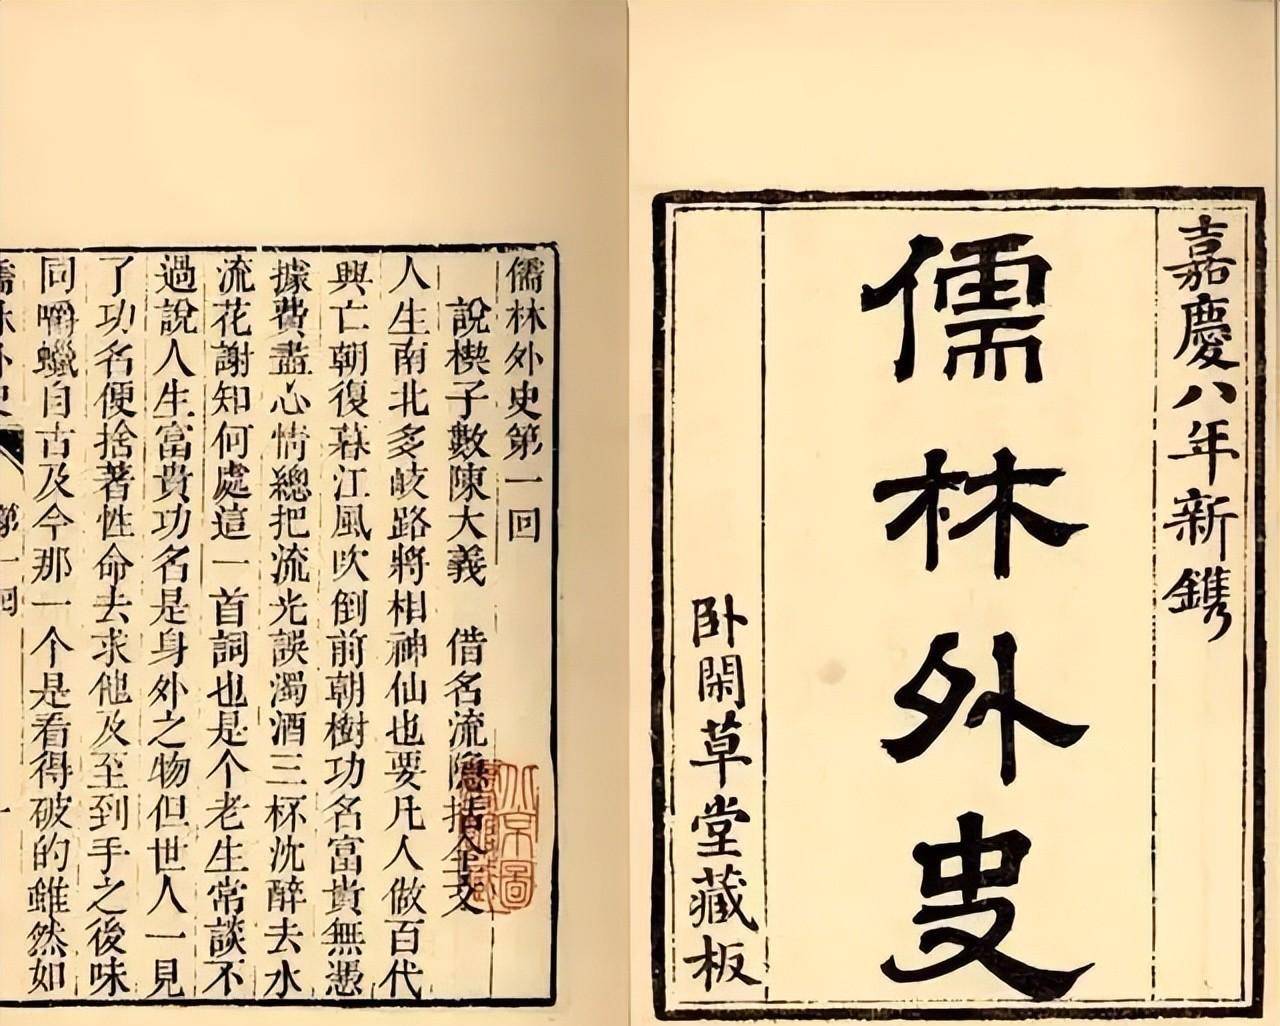 嘉慶八年新鐫
儒林外史
卧閑草堂藏板
儒林外史第一回
說楔子敷陳大義　借名流隱括全文
人生南北多歧路將相神仙也要凡人做百代
興亡朝復暮江風吹倒前朝樹功名富貴無憑
據費盡心情總把流光誤濁酒三杯沈醉去水
流花謝知何處這一首詞也是个老生常談不
過說人生富貴功名是身外之物但世人一見
了功名便捨著性命去求他及至到手之後味
同嚼蠟自古及今那一个是看得破的雖然如
儒林外史
第一回